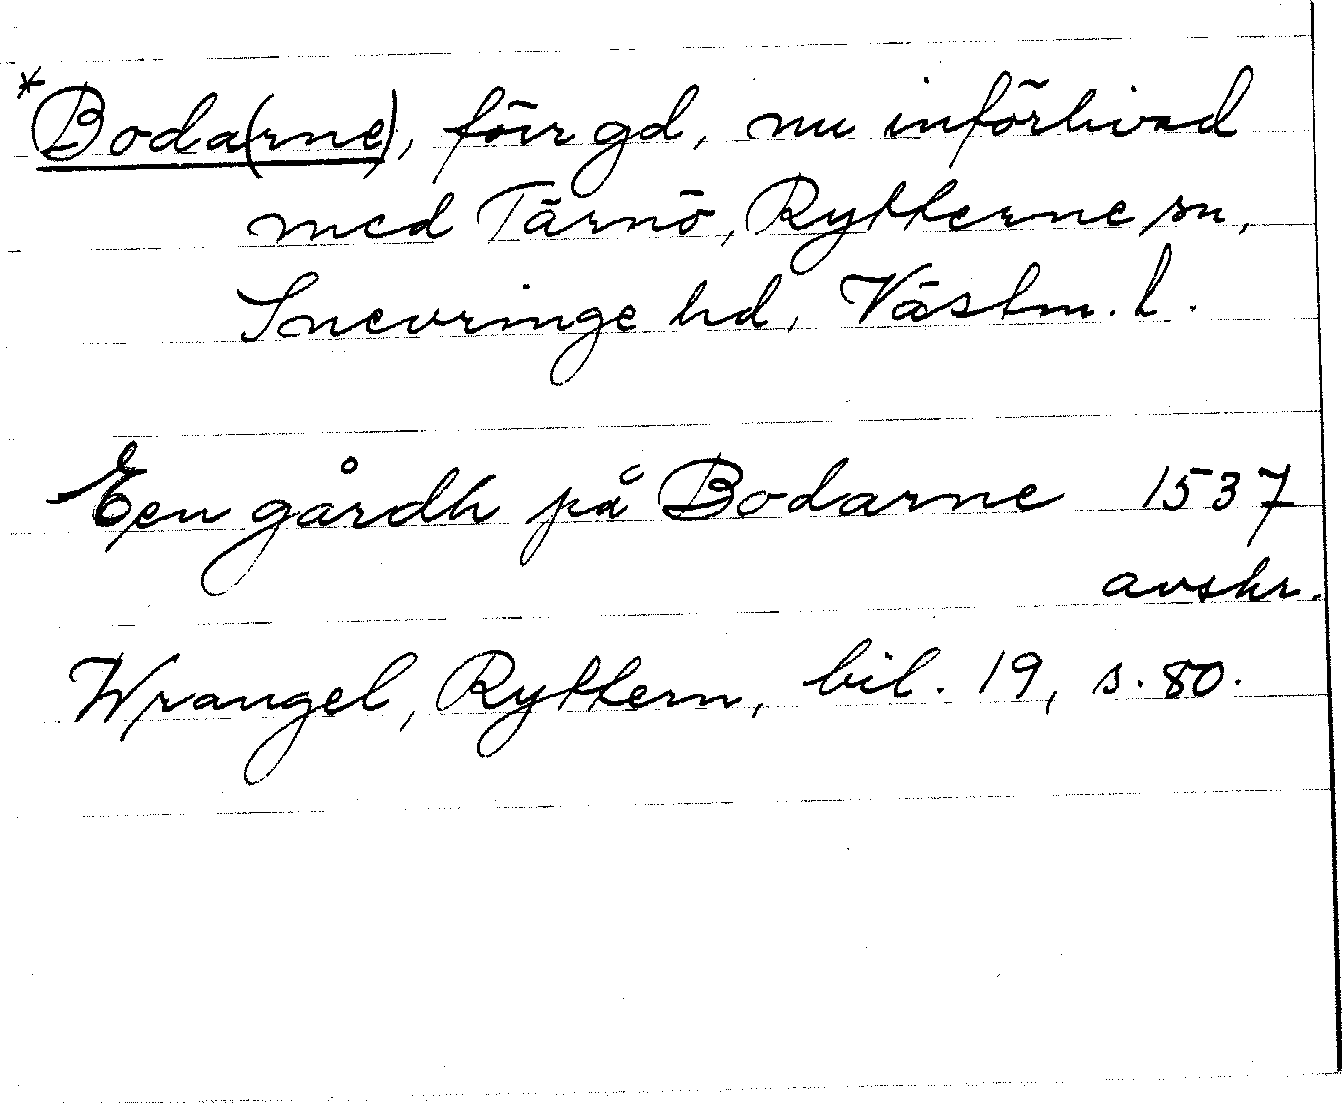 *Boda(rne), förr gd, nu införlivad
med Tärnö, Rytterne sn,
Snevringe hd, Västm. l.
Een gårdh på Bodarne 1537
avskr.
Wrangel, Ryttern, bil. 19, s. 80.